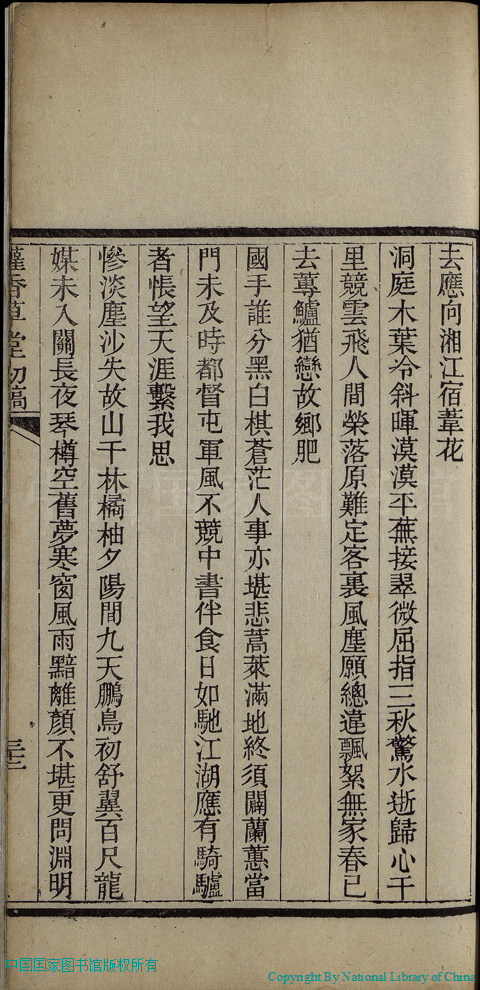 去應向湘江宿葦花
洞庭木葉冷斜暉漠漠平蕪接翠微屈指三秋驚水逝歸心千
里競雲飛人間榮落原難定客裏風塵願總違飄絮無家春已
去蓴鱸猶戀故鄉肥
國手誰分黑白棋蒼茫人事亦堪悲蒿萊滿地終須闢蘭蕙當
門未及時都督屯軍風不競中書伴食日如馳江湖應有騎驢
者悵望天涯繫我思
慘淡塵沙失故山千林橘柚夕陽間九天鵬鳥初舒翼百尺龍
媒未入關長夜琴樽空舊夢寒窗風雨黯離顏不堪更問淵明
香草堂初稿
三十二
中国国家图书馆版权所有
Copyright By National Library of China